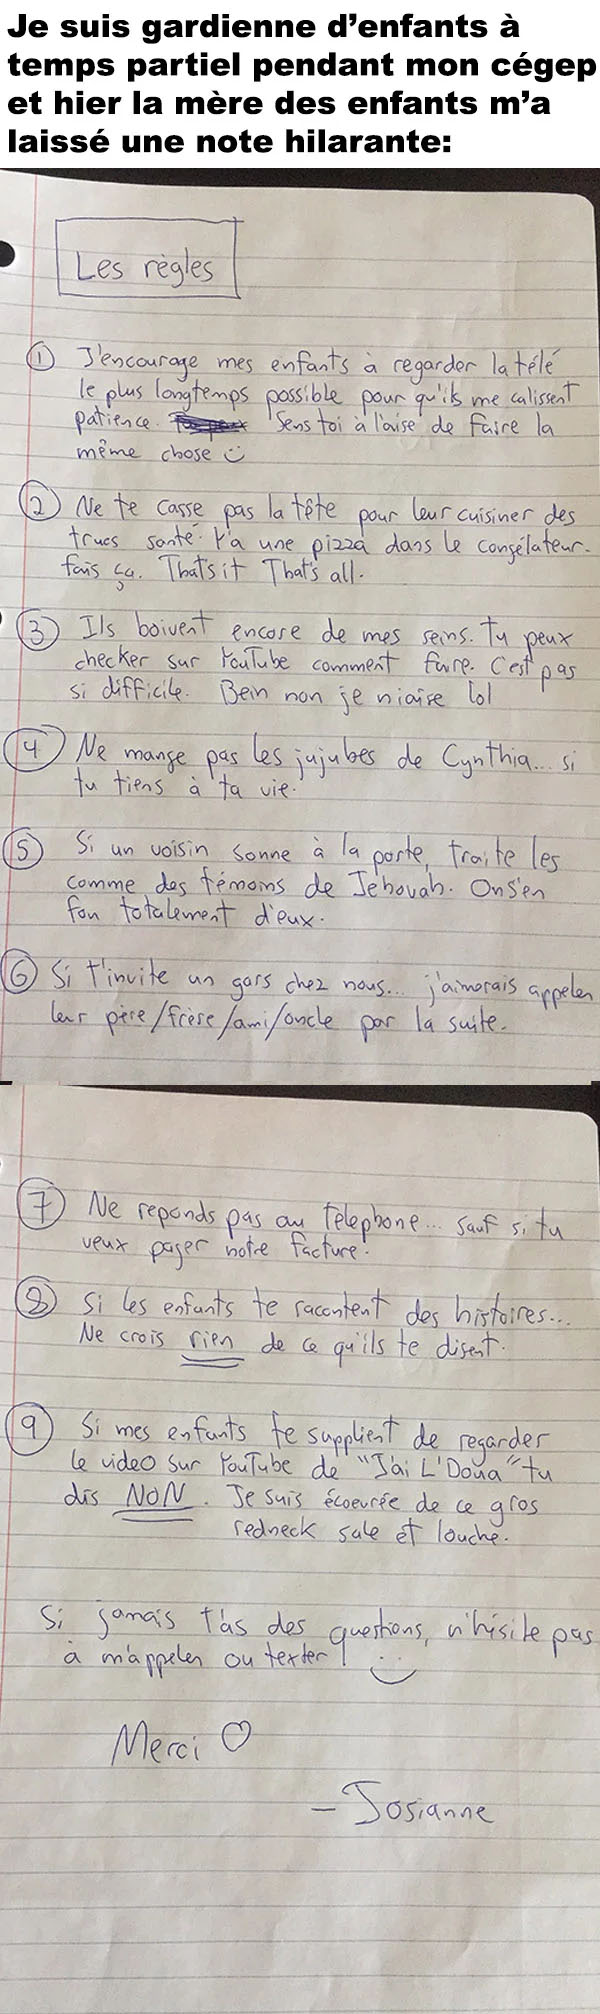 Je suis gardienne d'enfants à
temps partiel pendant mon cégep
et hier la mère des enfants m'a
laissé une note hilarante:
Les règles
① J'encourage mes enfants à regarder la télé
le plus longtemps possible pour qu'ils me calissent
patience. Sens toi à l'aise de faire la
même chose
② Ne te casse pas la tête pour leur cuisiner des
trucs santé. Y'a une pizza dans le congélateur.
fais ça. That's it That's all.
③ Ils boivent encore de mes seins. Tu peux
checker sur YouTube comment faire. C'est pas
si difficile. Bein non je niaise lol
④ Ne mange pas les jujubes de Cynthia... si
tu tiens à ta vie.
⑤ Si un voisin sonne à la porte, traite les
comme des témoins de Jehovah. On s'en
fou totalement d'eux.
⑥ Si t'invite un gars chez nous... j'aimerais appeler
leur père/frère/ami/oncle par la suite.
⑦ Ne reponds pas au téléphone... sauf si tu
veux payer notre facture.
⑧ Si les enfants te racontent des histoires...
Ne crois rien de ce qu'ils te disent.
⑨ Si mes enfants te supplient de regarder
le video sur YouTube de "J'ai L'Doua" tu
dis NON. Je suis écoeurée de ce gros
redneck sale et louche.
Si jamais t'as des questions, n'hésite pas
à m'appeler ou texter!
Merci ♡
- Josianne